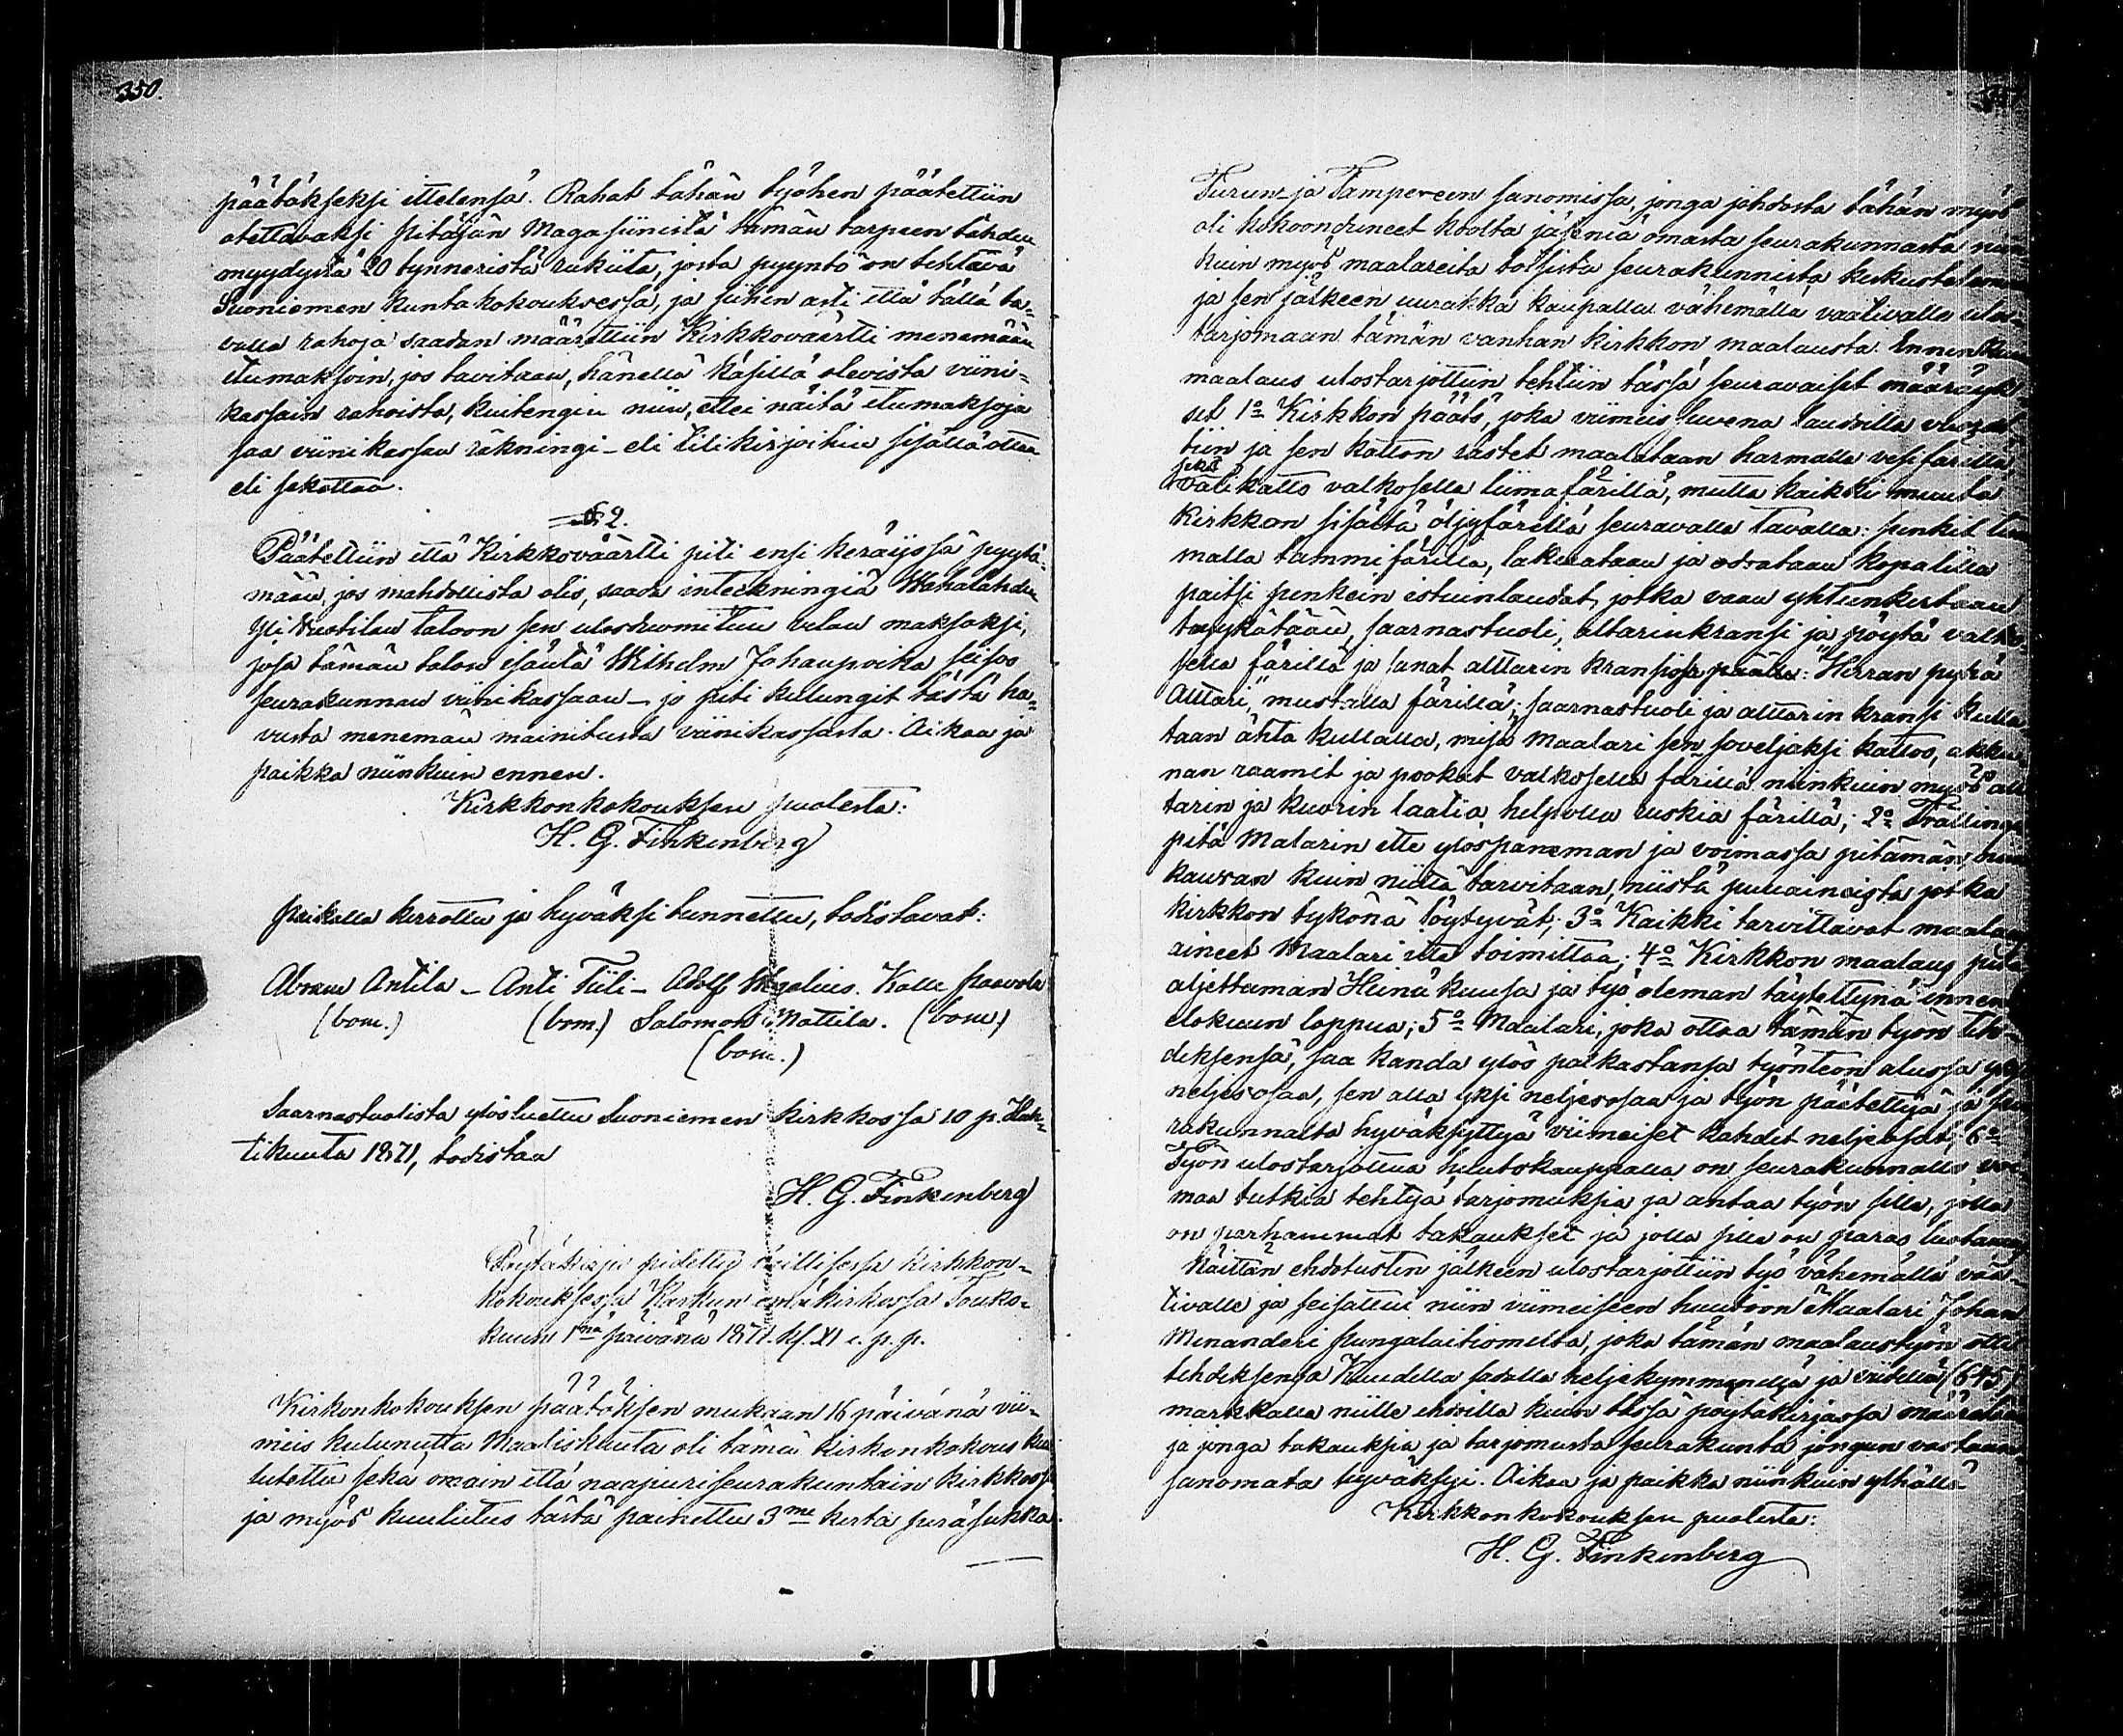 350.
päätökseksi ittelensä. Rahat tähän työhen päätettiin
otettavaksi pitäjän Magasiinista tämän tarpeen tähden
myydyistä 20 tynneristä rukiita, josta pyyntö on tehtävä
Suoniemen kuntakokouksessa, ja siihen asti että tällä ta=
valla rahoja saadan määrättiin Kirkkovärtti menemään
etumaksoin, jos tavitaan, hänellä käsillä olevista viini=
kassain rahoista, kuitengin niin, ettei näitä etumaksoja
saa viinikassan räkningi- eli tilikirjoihin sisällä ottaa
eli sekottaa.
§ 2.
Päätettiin että Kirkkoväärtti piti ensi keräjissä pyytä=
mään, jos mahdollista olis, saada inteckningiä Wahalahden
Yli Knuutilan taloon sen uloshuomitun velan maksoksi,
josa tämän talon isäntä Wilhelm Johanpoika seisoo
seurakunnan viinikassaan – ja piti kulungit tästä ha=
vusta menemän mainitusta viinikassasta. Aikaa ja
paikka niinkuin ennen.
Kirkkonkokouksen puolesta:
H. G. Finkenberg
paikalla kerrottu ja hyväksi tunnettu, todistavat:
Abram Antila – Anti Tiili – Adolf Kalle Paavola
(bom.) (bom.) Salomon Mattila. (bom.)
(bom.)
Saarnastuolista ylösluettu Suoniemen kirkkossa 10 p. Huh=
tikuuta 1871, todistaa
H. G. Finkenberg
Pöytäkirja pidetty laillisessa kirkkon=
kokouksessa Karkun emäkirkossa Touko=
kuun 1nä päivänä 1871. Kl. XI e. p. p.
Kirkonkokouksen päätöksen mukaan 16 päivänä vii=
meis kulunutta Maaliskuuta oli tämä kirkonkokous kuu
lutettu sekä omain että naapuriseurakuntain kirkkossa
ja myös kuulutus tästä painettu 3me kerta peräsukka
Turun- ja Tampereen sanomissa, jonga johdosta tähän myös
oli kokoonduneet koolta jäseniä omasta seurakunnasta niin
kuin myös maalareita toisista seurakunnista keskustelemaan
ja sen jälkeen uurakka kaupalla vähemällä vaativalle ulos=
tarjomaan tämän vanhan kirkkon maalausta. Ennenkuin
maalaus ulostarjottiin tehtiin tässä seuravaiset määräyk=
set 1o Kirkkon pääts, joka viimeis suvena laudoilla vuorat
tiin ja sen katton rästet maalataan harmalla vesifärillä,
sekä
välikatto valkosella liimafärillä, mutta kaikki muuta
Kirkkon sisältä öljyfärillä seuravalla tavalla: penkit tum
malla tammifärillä, lakerataan ja odrataan kopalilla
paitsi penkein istuinlaudat, jotka vaan yhteenkertaan
strykätään, saarnastuoli, altarinkransi ja pöytä valko
sella färillä ja sanat alttarin kransissa päällä: "Herran pyhä
Alttari," mustalla färillä; saarnastuoli ja alttarin kransi kulla
taan ähta kullalla, missä Maalari sen soveljaksi kattoo, akku
nan raamit ja pookat valkosella färillä niinkuin myös alt
tarin ja kuorin laatia helpolla ruskia färillä; 2o Trällingi
pitä Malarin itte ylöspaneman ja voimassa pitämän, niin
kauvan kuin niitä tarvitaan, niistä puuaineista jotka
kirkkon tykönä löytyvät; 3o Kaikki tarvittavat maalaus
aineet Maalari itte toimittaa; 4o Kirkkon maalaus pitä
aljettaman Heinä kuusa ja työ oleman täytettynä ennen
elokuun loppua; 5o Maalari, joka ottaa tämän työn teh=
deksensä, saa kanda ylös palkastansa työnteon alussa yksi
neljesosaa, sen alla yksi neljesosaa ja työn päätettyä ja seu
rakunnalta hyväksyttyä viimeiset kahdet neljesosat; 6o
Työn ulostarjottua huutokaupalla on seurakunnalla voi
maa tutkia tehtyjä tarjomuksia ja antaa työn sille, jolla
on parhammat takaukset ja jolla sillä on paras luotamus
Näittän ehdotusten jälkeen ulostarjottiin työ vähemällä vaa=
tivalle ja seisattui niin viimeiseen huutoon Maalari Johan
Menanderi Pungalaitiomelta, joka tämän maalaustyön otti
tehdeksensä Kuudella sadalla neljekymmendä ja viidellä (645)
markkalla niille ehdoilla kuin tässä pöytäkirjassa määrätään
ja jonga takauksia ja tarjomusta seurakunta jongun vastaan
sanomata hyväksyi. Aikaa ja paikka niinkuin ylhällä
Kirkkonkokouksen puolesta:
H. G. Finkenberg